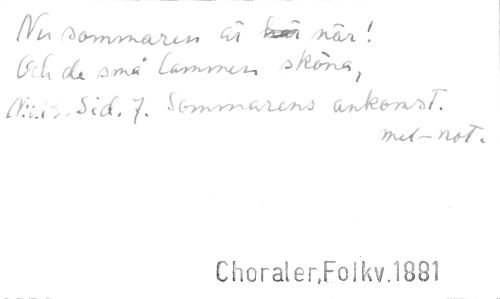 Nu sommaren är när!
Och de små lammen sköna,
Sid. 7. Sommarens ankomst.
mel-not.
Choraler,Folkv.1881